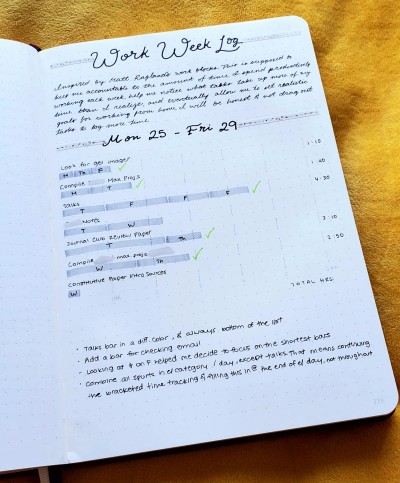 Work Week Log
Inspired by Matt Ragland's work blocks. This is supposed to
keep me accountable to the amount of time I spend productively
working each week, help me notice what tasks take up more of my
time than I realize, and eventually allow me to set realistic
goals for working from home. I will be honest & not drag out
tasks to log more time.
Mon 25 - Fri 29
Look for gel images
H Th F
Compile Max Projs
H T
Talks 4:30
T F F F
Notes
T W
Journal Club Review Paper
T Th
Compile max projs 2:50
W Th
Constitutive Paper Intro Sources
W
TOTAL HRS:
• Talks bar in a diff. color, & always bottom of the list
• Add a bar for checking email
• Looking at # on F helped me decide to focus on the shortest bars
• Combine all spurts in e/ category / day, except talks. That means continuing
the bracketed time tracking & filling this in @ the end of e/ day, not throughout